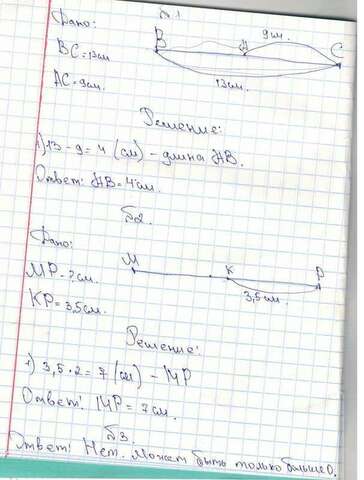 №1
Дано:
BC = 13 см
AC = 9 см.
B
A
C
9 см.
13 см.
Решение:
1) 13 - 9 = 4 (см) - длина AB.
Ответ: AB = 4 см.
№2
Дано:
MP - ? см.
KP = 3,5 см.
M
K
P
3,5 см.
Решение:
1) 3,5 · 2 = 7 (см) - MP
Ответ: MP = 7 см.
№3.
Ответ: Нет. Может быть только больше 0.